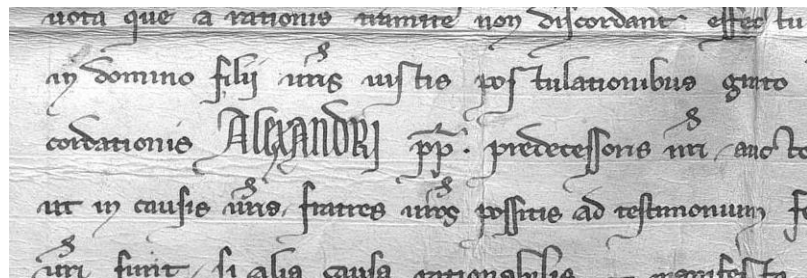 uota que a rationis tramite non discordant effectu
in domino filii uris iustis postulationibus grato
cordationis ALEXANDRI pp. predecessoris nri aucto
ut in causis uris fratres uros possitis ad testimonium
uri fuint si alia causa rationabilis manifesta